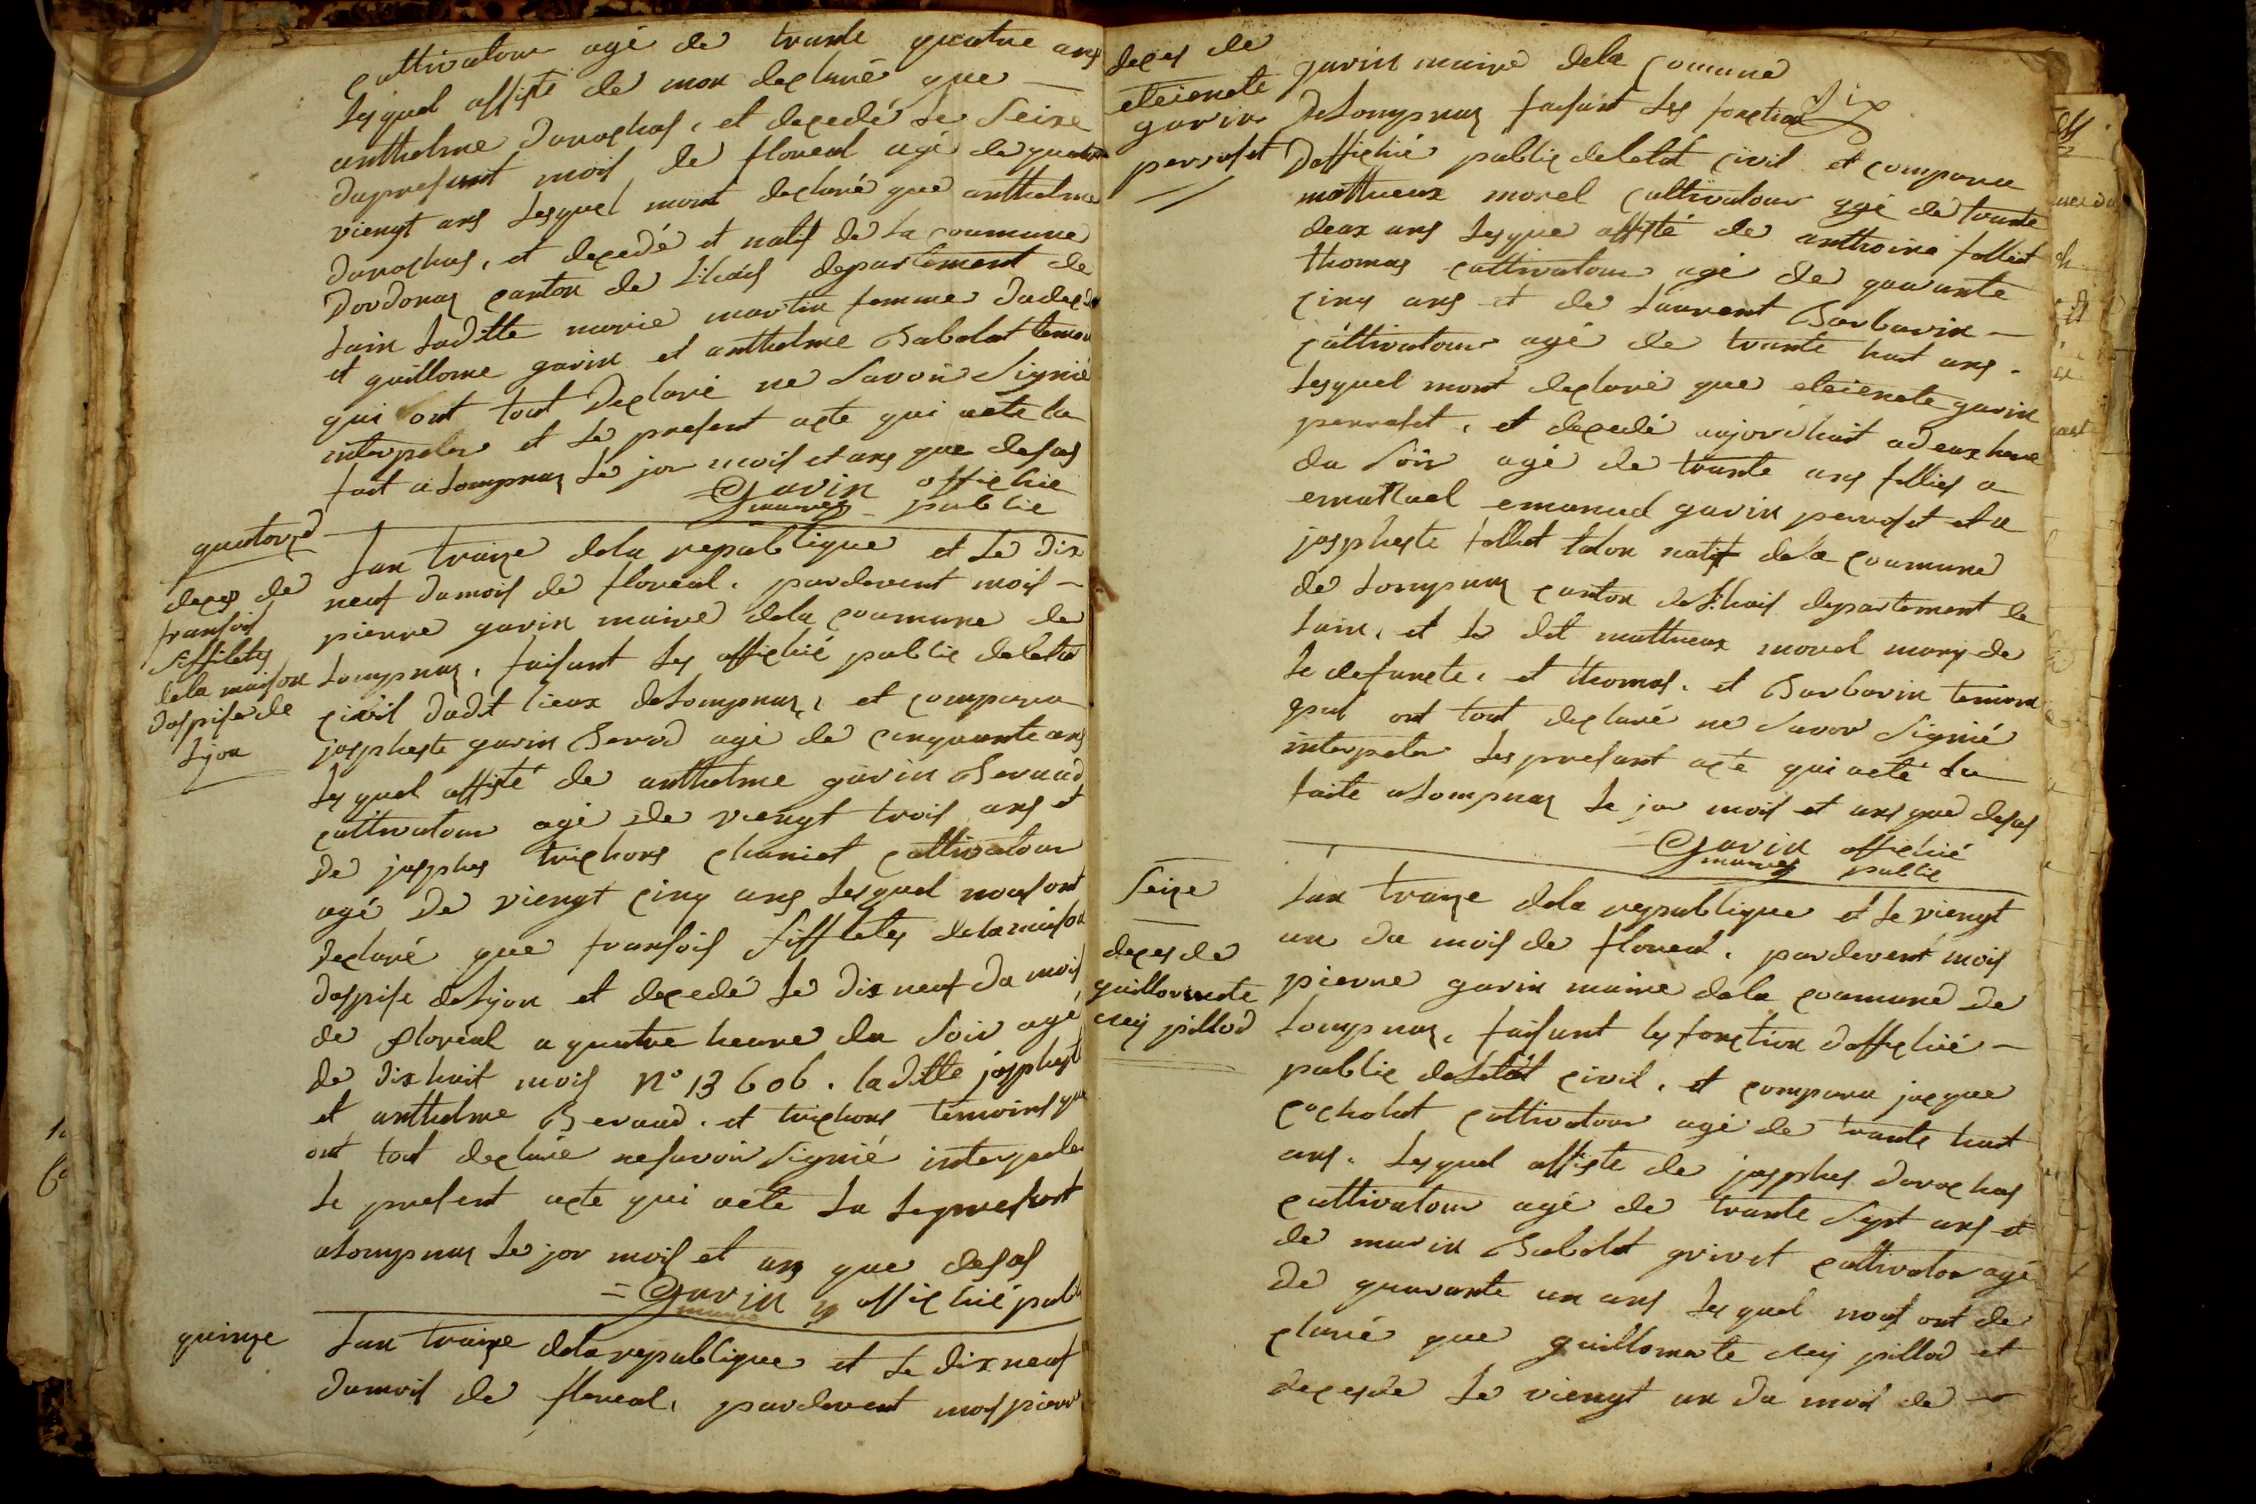 cultivatour agé de trante quatre ans
lesquel assisté de mon declaré que
anthelme Darochas, et decedé le seize
dupresent mois de floreal agé de quatre
viengt ans lesquel mont declaré que anthelme
darochas, et decedé et natif de la coumune
Dordonas canton de departement de
lain laditte marie martin femme dudecede
et guillome gavin et anthelme Babolat temoin
qui ont tout declaré ne savoir signié
interpeler et le present acte qui aete la
fait a Lompnas le jor mois et ans que desas
Gavin offichié
maire public
quatorze
deces de
fransois
siffletes
dela maison
dospise de
Lyon
Lan traize dela republique et le dix
neuf dumois de floreal. pardevent mois
pierre gavin maire dela coumune de
Lompnas, faisant les offichié public deletat
civil dudit lieux deLompnas, et compara
jospheste gavin Beraud agé de cinquante ans
lesquel assisté de anthelme gavin Beraud
cultivatour agé de viengt trois ans et
de josphes trichons chaniet cultivatour
agé de viengt cinq ans lesquel nousont
declaré que fransois siffletes delamaison
dospise deLyon et decedé le dixneuf du mois
de floreal a quatre heure du soir agé
de dixhuit mois n° 13606. laditte josphest
et anthelme Beraud. et trichons temoins qui
ont tout declaré nesavoir signié interpeler
le present acte qui aete la le present
aLompnas le jor mois et ans que desas
Gavin offichié publi
maire
quinze
Lan traize delarepublique et le dixneuf
dumois de floreal, pardevent mois pierre
deces de
eteienete
gavin
perroset
gavin maire dela comune
Six
deLompnas faisant les fonction
doffichié public deletat civil et compara
mathieux morel cultivatour agé de trante
deux ans lesque assisté de anthoine folliet
thomas cultivatour agé de quarante
cinq ans et de laurent Barbarin
cultivatour agé de trante huit ans.
lesquel mont declaré que eteienete gavin
perroset, et decedé aujordhuit adeux heure
du soir agé de trante ans fillies a
emanuel gavin perroset et a
jospheste folliet talon natif dela coumune
de Lompnas canton de departement de
lain, et le dit mathieux morel mary de
le defunete, et thomas. et Barbarin temoin
qui ont tout declaré ne savoir signié
interpeler les presant acte qui aeté la
faite aLompnas le jor mois et ans que desas
Gavin offichié
maire public
seize
deces de
guillomete
pillod
Lan traize dela republique et le viengt
un du mois de floreal. pardevent mois
pierre gavin maire dela coumune de
Lompnas, faisant les fonction doffichié
public deletat civil, et compara jacque
cocholat cultivatour agé de trante huit
ans. lesquel assiste de josphes darochas
cultivatour agé de trante sept ans et
de marin Babolat grivet cultivator agé
de quarante un ans lesquel nous ont de
claré que guillomete pillod et
decede le viengt un du mois de